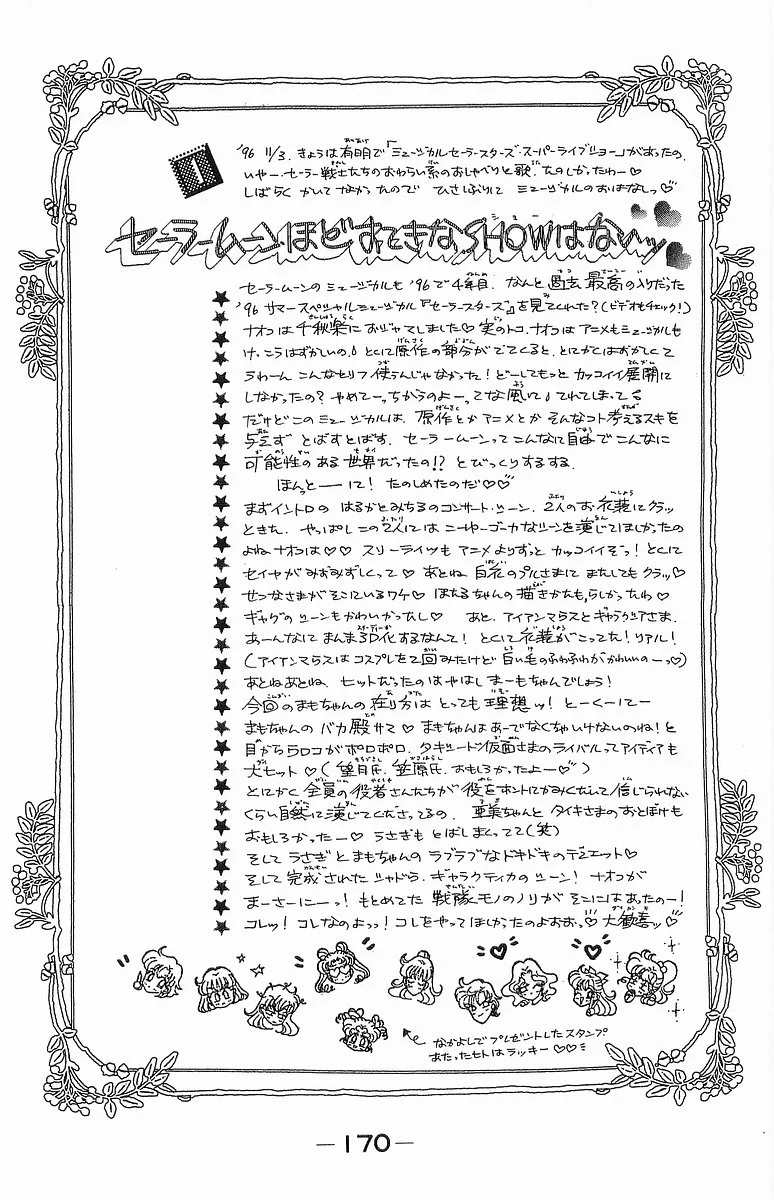 1
'96 11/3. きょうは有明で「ミュージカルセーラースターズ・スーパーライブショー」があったの。
いやー・セーラー戦士たちのおわらい系のおしゃべりと歌. たのしかったわー♡
しばらく かいてなかったので ひさぶりに ミュージカルのおはなしっ♡
セーラームーンほどすてきなSHOWはないッ
セーラームーンの ミュージカルも '96で4年目. なんと過去最高の入りだった
'96 サマースペシャルミュージカル『セーラースターズ』を見てくれた？(ビデオもチェック！)
ナオコは千秋楽におジャマしました♡ 実のトコ. ナオコはアニメもミュージカルも
け。こうはずかしいの。とくに原作の部分がでてくると. とにかくはずかしくて
うわーん こんなセリフ使うんじゃなかった！どーしてもっと カッコイイ展開に
しなかったの？ やめてーっちからのよーってな風にてれてしまって
だけどこのミュージカルは. 原作とかアニメとか そんなコト考えるスキを
与えず とばすとばす. セーラームーンって こんなに自由でこんなに
可能性のある世界だったの!? とびっくりするする.
ほんっとーに！ たのしめたのだ♡♡
まずイントロの はるかとみちるのコンサート・シーン. 2人のお衣装にクラッ
ときた. やっぱしこの2人には こーゆーゴーカなシーンを演じてほしかったの
よねナオコは♡♡ スリーライツも アニメよりずっと カッコイイぞっ！とくに
セイヤがみずみずしくって♡ あとね 白衣のプルさまに またしてもクラッ♡
せつなさまがそこにいるワケ♡ ほたるちゃんの描きかたも。らしかったわ♡
ギャグのシーンもかわいかったし♡ あと. アイアンマウスとギャラクシアさま.
あーんなに まんま3D化するなんて！ とくに衣装がこってた！リアル！
(アイアンマウスはコスプレを2回みたけど 白い毛のふわふわがかわいいのーっ♡)
あとねあとね. ヒットだったのはやはし まーもちゃんでしょう！
今回のまもちゃんの在り方は とっても理想ッ！ とーくーにー
まもちゃんの バカ殿サマ♡ まもちゃんはあーでなくちゃいけないのね！と
目からウロコがポロポロ. タキシード仮面さまのライバルってアイディアも
大ヒット♡(望月氏. 笠原氏. おもしろかったよー♡)
とにかく全員の役者さんたちが 役をホントにかみくだいて 信じられない
くらい自然に演じてくださってるの. 亜美ちゃんと タイキさまのおとぼけも
おもしろかったー♡ うさぎも とばしまくってて(笑)
そして うさぎとまもちゃんの ラブラブなドキドキのデュエット♡
そして完成された シャドウ. ギャラクティカのシーン！ ナオコが
まーさーにーっ！もとめてた 戦隊モノのノリが そこにはあったのー！
コレッ！コレなのよっっ！コレをやってほしかったのよおおっ♡ 大歓喜ッ♡
なかよしで プレゼントしたスタンプ
あたったヒトはラッキー♡♡
—170—